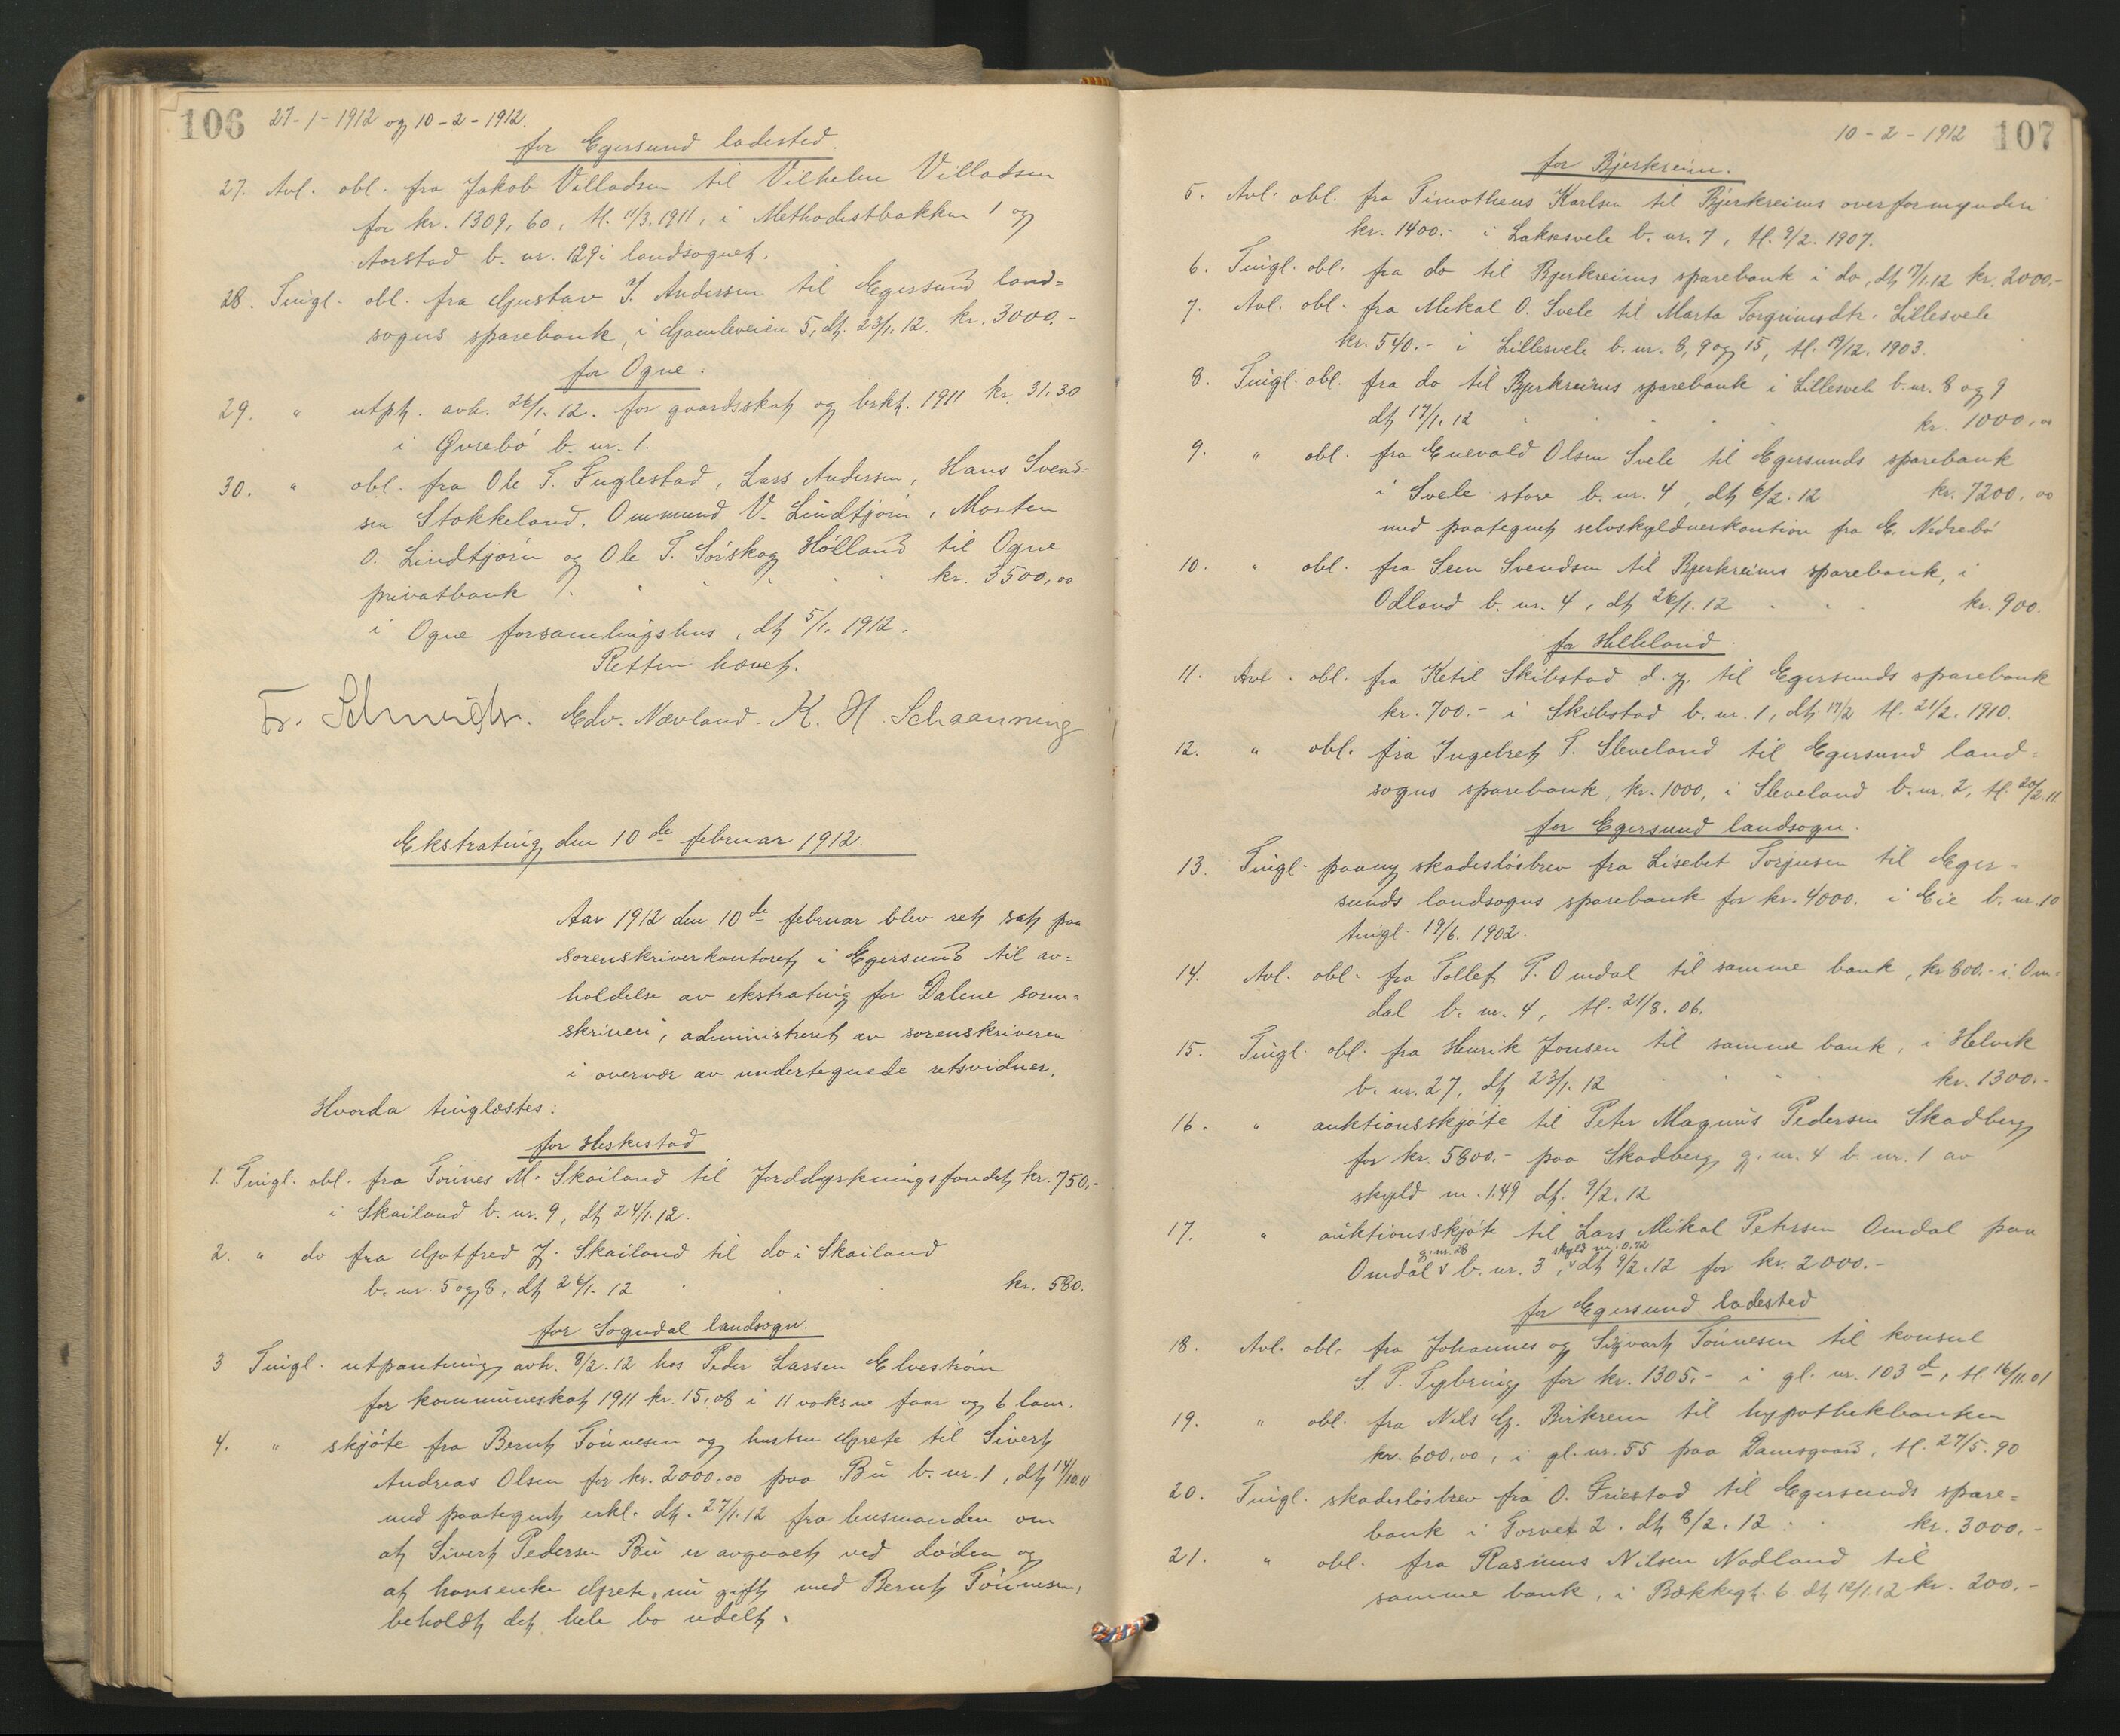 106 27-1-1912 og 10-2-1912.
for Egersund ladested.
27. Avl. obl. fra Jakob Villadsen til Vilhelm Villadsen
for kr. 1309,60, tl. 11/3.1911, i Methodistbakken 1 og
Aarstad b. nr. 129 i landsognet.
28. Tingl. obl. fra Gustav I. Andersen til Egersund land=
sogns sparebank, i Gamleveien 5, dt. 23/1.12. kr. 3000.-
for Ogne.
29. " utpt. avh. 26/1.12. for gaardsskat og brkt. 1911 kr. 31.30
i Øvrebö b. nr. 1.
30. " obl. fra Ole T. Fuglestad, Lars Andersen, Hans Svend=
sen Stokkeland, Ommund V. Lindtjörn, Morten
O. Lindtjörn og Ole T. Sörskog Hölland til Ogne
privatbank kr. 3500,00
i Ogne forsamlingshus, dt 5/1.1912.
Retten hævet.
Fr. Schneider. Edv. Nævland. K. H. Schaanning
Ekstrating den 10de februar 1912.
Aar 1912 den 10de februar blev ret sat paa
sorenskriverkontoret i Egersund til av=
holdelse av ekstrating for Dalene soren=
skriveri, administreret av sorenskriveren
i overvær av undertegnede retsvidner.
Hvorda tinglæstes:
for Heskestad
1. Tingl. obl. fra Tönnes M. Skailand til Jorddyrkningsfondet kr. 750,-
i Skailand b. nr. 9, dt 24/1.12.
2. " do fra Gotfred J. Skailand til do i Skailand
b. nr. 5 og 8, dt 26/1.12 kr. 580.
for Sogndal landsogn.
3 Tingl. utpantning avh. 8/2.12 hos Peder Larsen Elveström
for kommuneskat 1911 kr. 15,08 i 11 voksne faar og 6 lam.
4. " skjöte fra Bernt Tönnesen og hustru Grete til Sivert
Andreas Olsen for kr. 2000,00 paa Bu b. nr. 1, dt 14/10.11
med paategnet erkl. dt. 27/1.12 fra lensmanden om
at Sivert Pedersen Bu er avgaaet ved döden og
at hans enke Grete, nu gift med Bernt Tönnesen,
beholdt det hele bo udelt.
10-2-1912 107
for Bjerkreim.
5. Avl. obl. fra Timotheus Karlsen til Bjerkreims overformynderi
kr. 1400.- i Laksesvele b. nr. 7, tl. 9/2.1907.
6. Tingl. obl. fra do til Bjerkreims sparebank i do, dt 17/1.12 kr. 2000.-
7. Avl. obl. fra Mikal O. Svele til Marta Torgrimsdtr. Lillesvele
kr. 540.- i Lillesvele b. nr. 8, 9 og 15, tl. 19/12.1903.
8. Tingl. obl. fra do til Bjerkreims sparebank i Lillesvele b. nr. 8 og 9
dt 17/1.12 kr. 1000,00
9. " obl. fra Enevald Olsen Svele til Egersunds sparebank
i Svele store b. nr. 4, dt 6/2.12 kr. 7200,00
med paategnet selvskyldnerkaution fra E. Nedrebö
10. " obl. fra Sem Svendsen til Bjerkreims sparebank, i
Odland b. nr. 4, dt 26/1.12 kr. 900.
for Helleland.
11. Avl. obl. fra Ketil Skibstad d. y. til Egersunds sparebank
kr. 700.- i Skibstad b. nr. 1, dt. 17/2 tl. 21/2.1910.
12. " obl. fra Ingebret T. Sleveland til Egersund land=
sogns sparebank, kr. 1000, i Sleveland b. nr. 2, tl. 20/2.11.
for Egersund landsogn.
13. Tingl. paany skadeslösbrev fra Lisebet Torjusen til Eger-
sunds landsogns sparebank for kr. 4000. i Eie b. nr. 10
tingl. 19/6.1902.
14. Avl. obl. fra Tollef P. Omdal til samme bank, kr. 800.- i Om-
dal b. nr. 4, tl. 21/8.06.
15. Tingl. obl. fra Henrik Jonsen til samme bank, i Helvik
b. nr. 27, dt 23/1.12 kr. 1300.-
16. " auktionsskjöte til Peter Magnus Pedersen Skadberg
for kr. 5800.- paa Skadberg g. nr. 4 b. nr. 1 av
skyld m. 1.49 dt. 9/2.12
17. " auktionsskjöte til Lars Mikal Petersen Omdal paa
g. nr. 28 skyld m. 0.72
Omdal v b. nr. 3, v dt 9/2.12 for kr. 2000.-
for Egersund ladested
18. Avl. obl. fra Johannes og Sigvart Tönnesen til konsul
S. P. Tybring for kr. 1305.- i gl. nr. 103 d, tl. 16/11.01
19. " obl. fra Nils G. Birkrem til hypothekbanken
kr. 600.00, i gl. nr. 55 paa Damsgaard, tl. 27/5.90
20. Tingl. skadeslösbrev fra O. Friestad til Egersunds spare=
bank i Torvet 2. dt 8/2.12 kr. 3000.-
21. " obl. fra Rasmus Nilsen Nodland til
samme bank, i Bækkegt. 6 dt 12/1.12 kr. 200.-